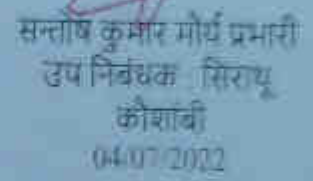 सन्तोष कुमार मौर्य प्रभारी
उप निबंधक सिराथू
कौशांबी
04/07/2022